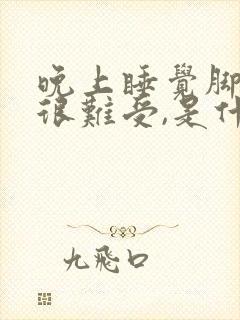 晚上睡覺腳
很難受,是什
九飛口